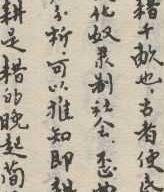 耤千畝也，古者使
化奴隶制社会，
分析，可以推知即耕
耕是耤的晚起简